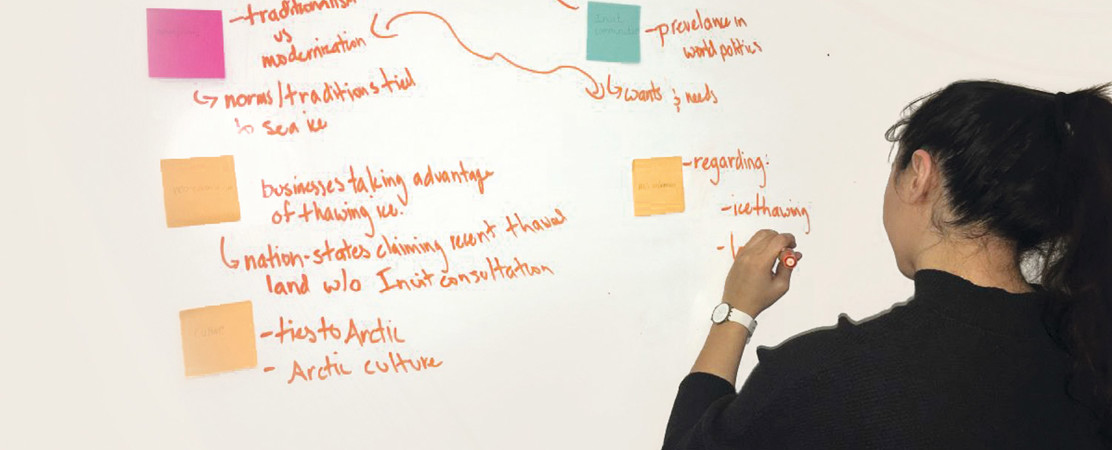 -traditionalism
vs
modernization
↳ norms/traditions tied
to sea ice
Inuit
-prevelance in
world politics
↳ wants & needs
businesses taking advantage
of thawing ice.
↳ nation-states claiming recent thawed
land w/o Inuit consultation
Culture
-ties to Arctic
- Arctic culture
-regarding:
-ice thawing
-